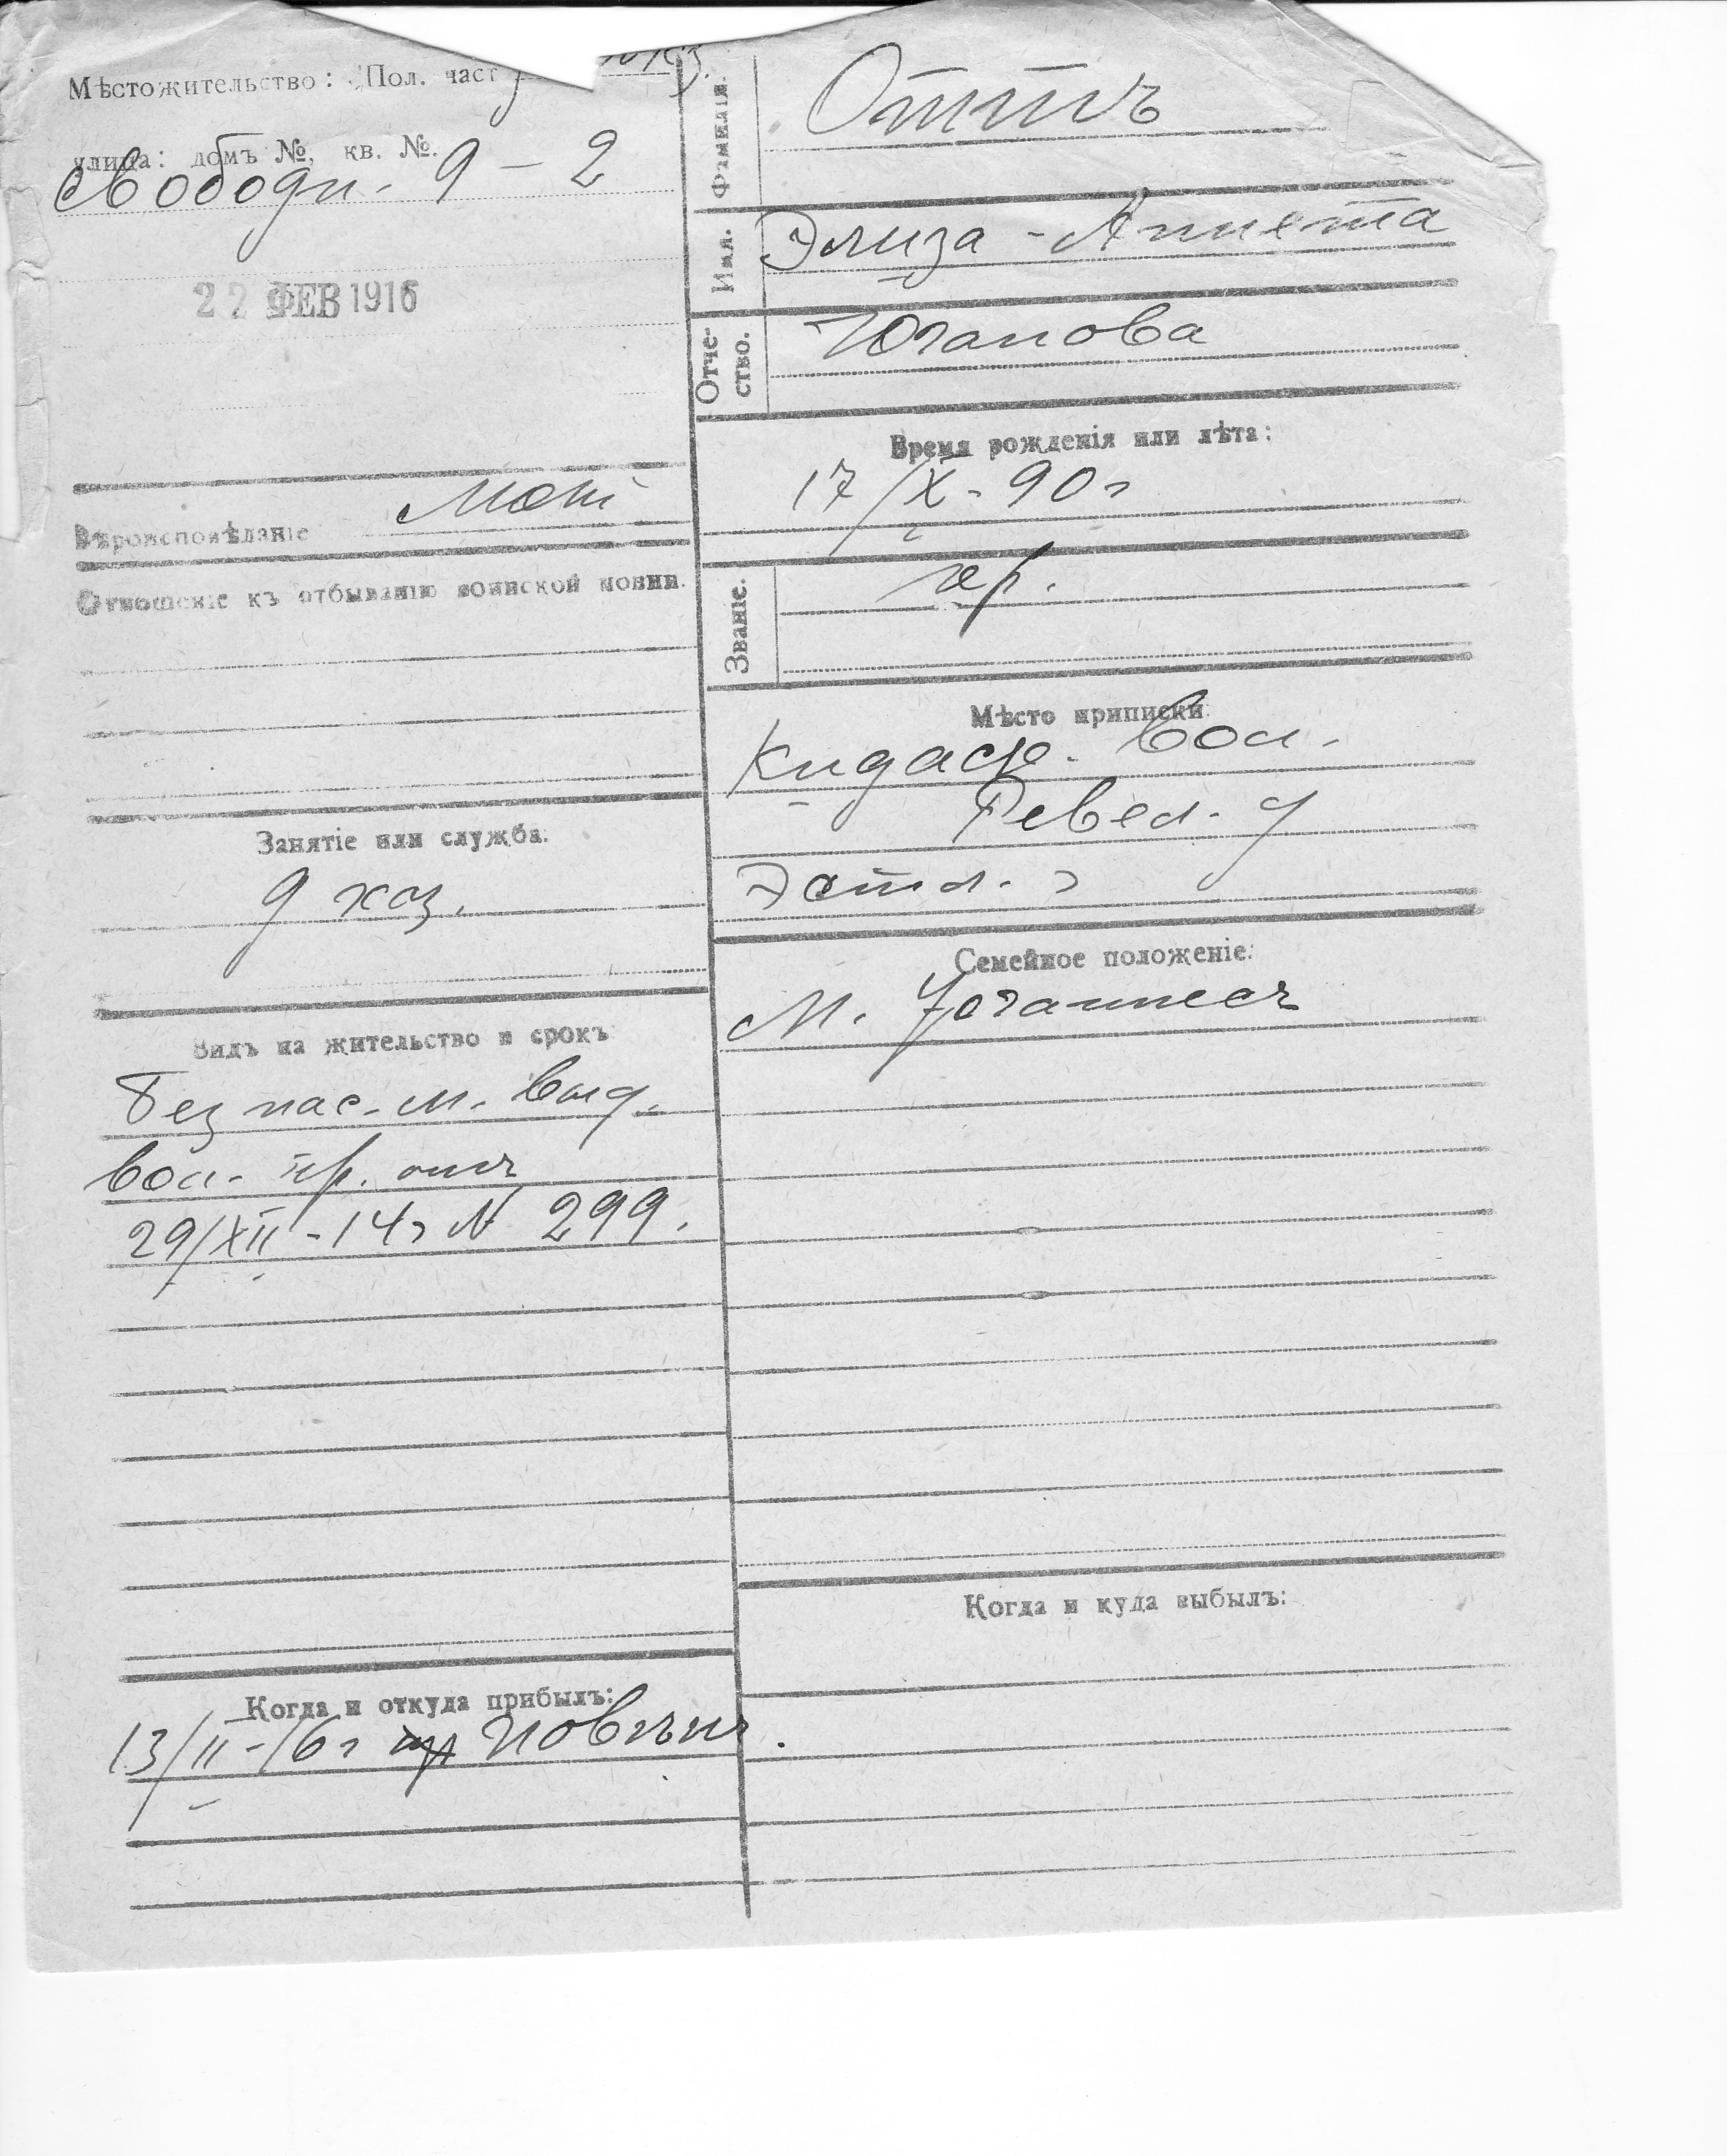 Мѣстожительство: Пол. част
улица: домъ №, кв. №.
Свободн. 9 – 2
22 ФЕВ 1916
Вѣроисповѣданіе
Отношеніе къ отбыванію воинской повин.
Занятіе или служба:
д хоз.
Видъ на жительство и срокъ
Без пас. м. выд.
вол. пр. отъ
29/XII - 14 г N 299.
Когда и откуда прибылъ:
13/II - 16 г
Фамилія.
Оттъ
Имя.
Элиза - Аннета
Отче-
ство.
Юганова
Время рожденія или лѣта:
17/X - 90 г
Званіе.
кр.
Мѣсто приписки
вол.
Ревел. у
Эстл. г
Семейное положеніе:
М. Иоганнесъ
Когда и куда выбылъ: